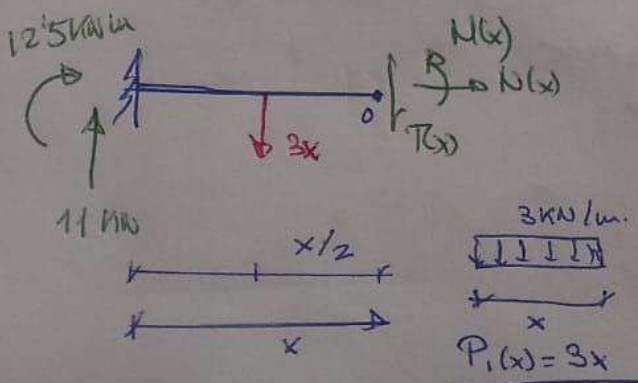 12'5 KN/m
M(x)
N(x)
O
T(x)
3x
11 KN
x/2
x
3KN/m.
x
P₁(x) = 3x